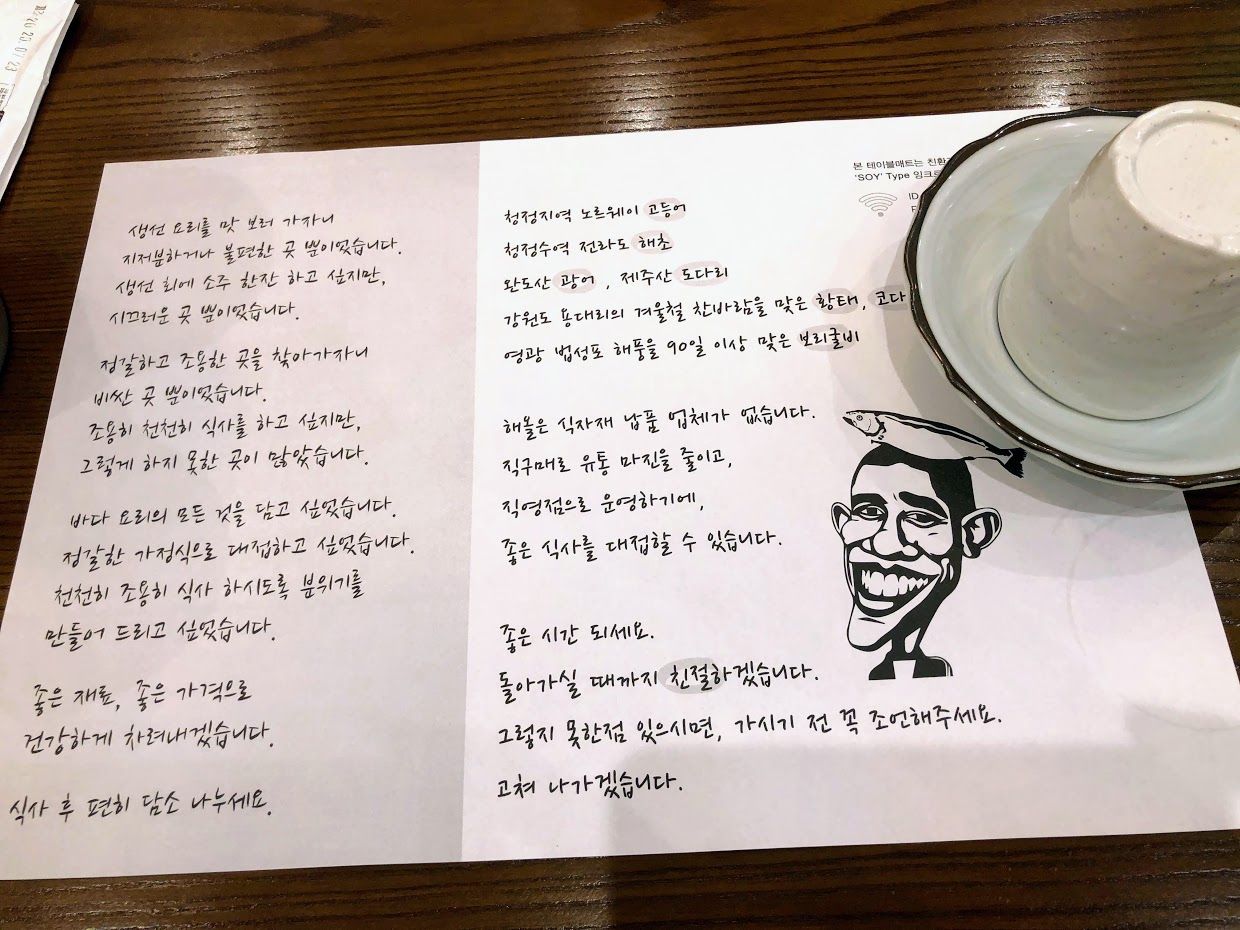 생선 요리를 맛 보러 가자니
지저분하거나 불편한 곳 뿐이었습니다.
생선 회에 소주 한잔 하고 싶지만,
시끄러운 곳 뿐이었습니다.
정갈하고 조용한 곳을 찾아가자니
비싼 곳 뿐이었습니다.
조용히 천천히 식사를 하고 싶지만,
그렇게 하지 못한 곳이 많았습니다.
바다 요리의 모든 것을 담고 싶었습니다.
정갈한 가정식으로 대접하고 싶었습니다.
천천히 조용히 식사 하시도록 분위기를
만들어 드리고 싶었습니다.
좋은 재료, 좋은 가격으로
건강하게 차려내겠습니다.
식사 후 편히 담소 나누세요.
본 테이블매트는
'SOY' Type
ID
청정지역 노르웨이 고등어
청정수역 전라도 해초
완도산 광어, 제주산 도다리
강원도 용대리의 겨울철 찬바람을 맞은 황태, 코다
영광 법성포 해풍을 90일 이상 맞은 보리굴비
해몰은 식자재 납품 업체가 없습니다.
직구매로 유통 마진을 줄이고,
직영점으로 운영하기에,
좋은 식사를 대접할 수 있습니다.
좋은 시간 되세요.
돌아가실 때까지 친절하겠습니다.
그렇지 못한점 있으시면, 가시기 전 꼭 조언해주세요.
고쳐 나가겠습니다.